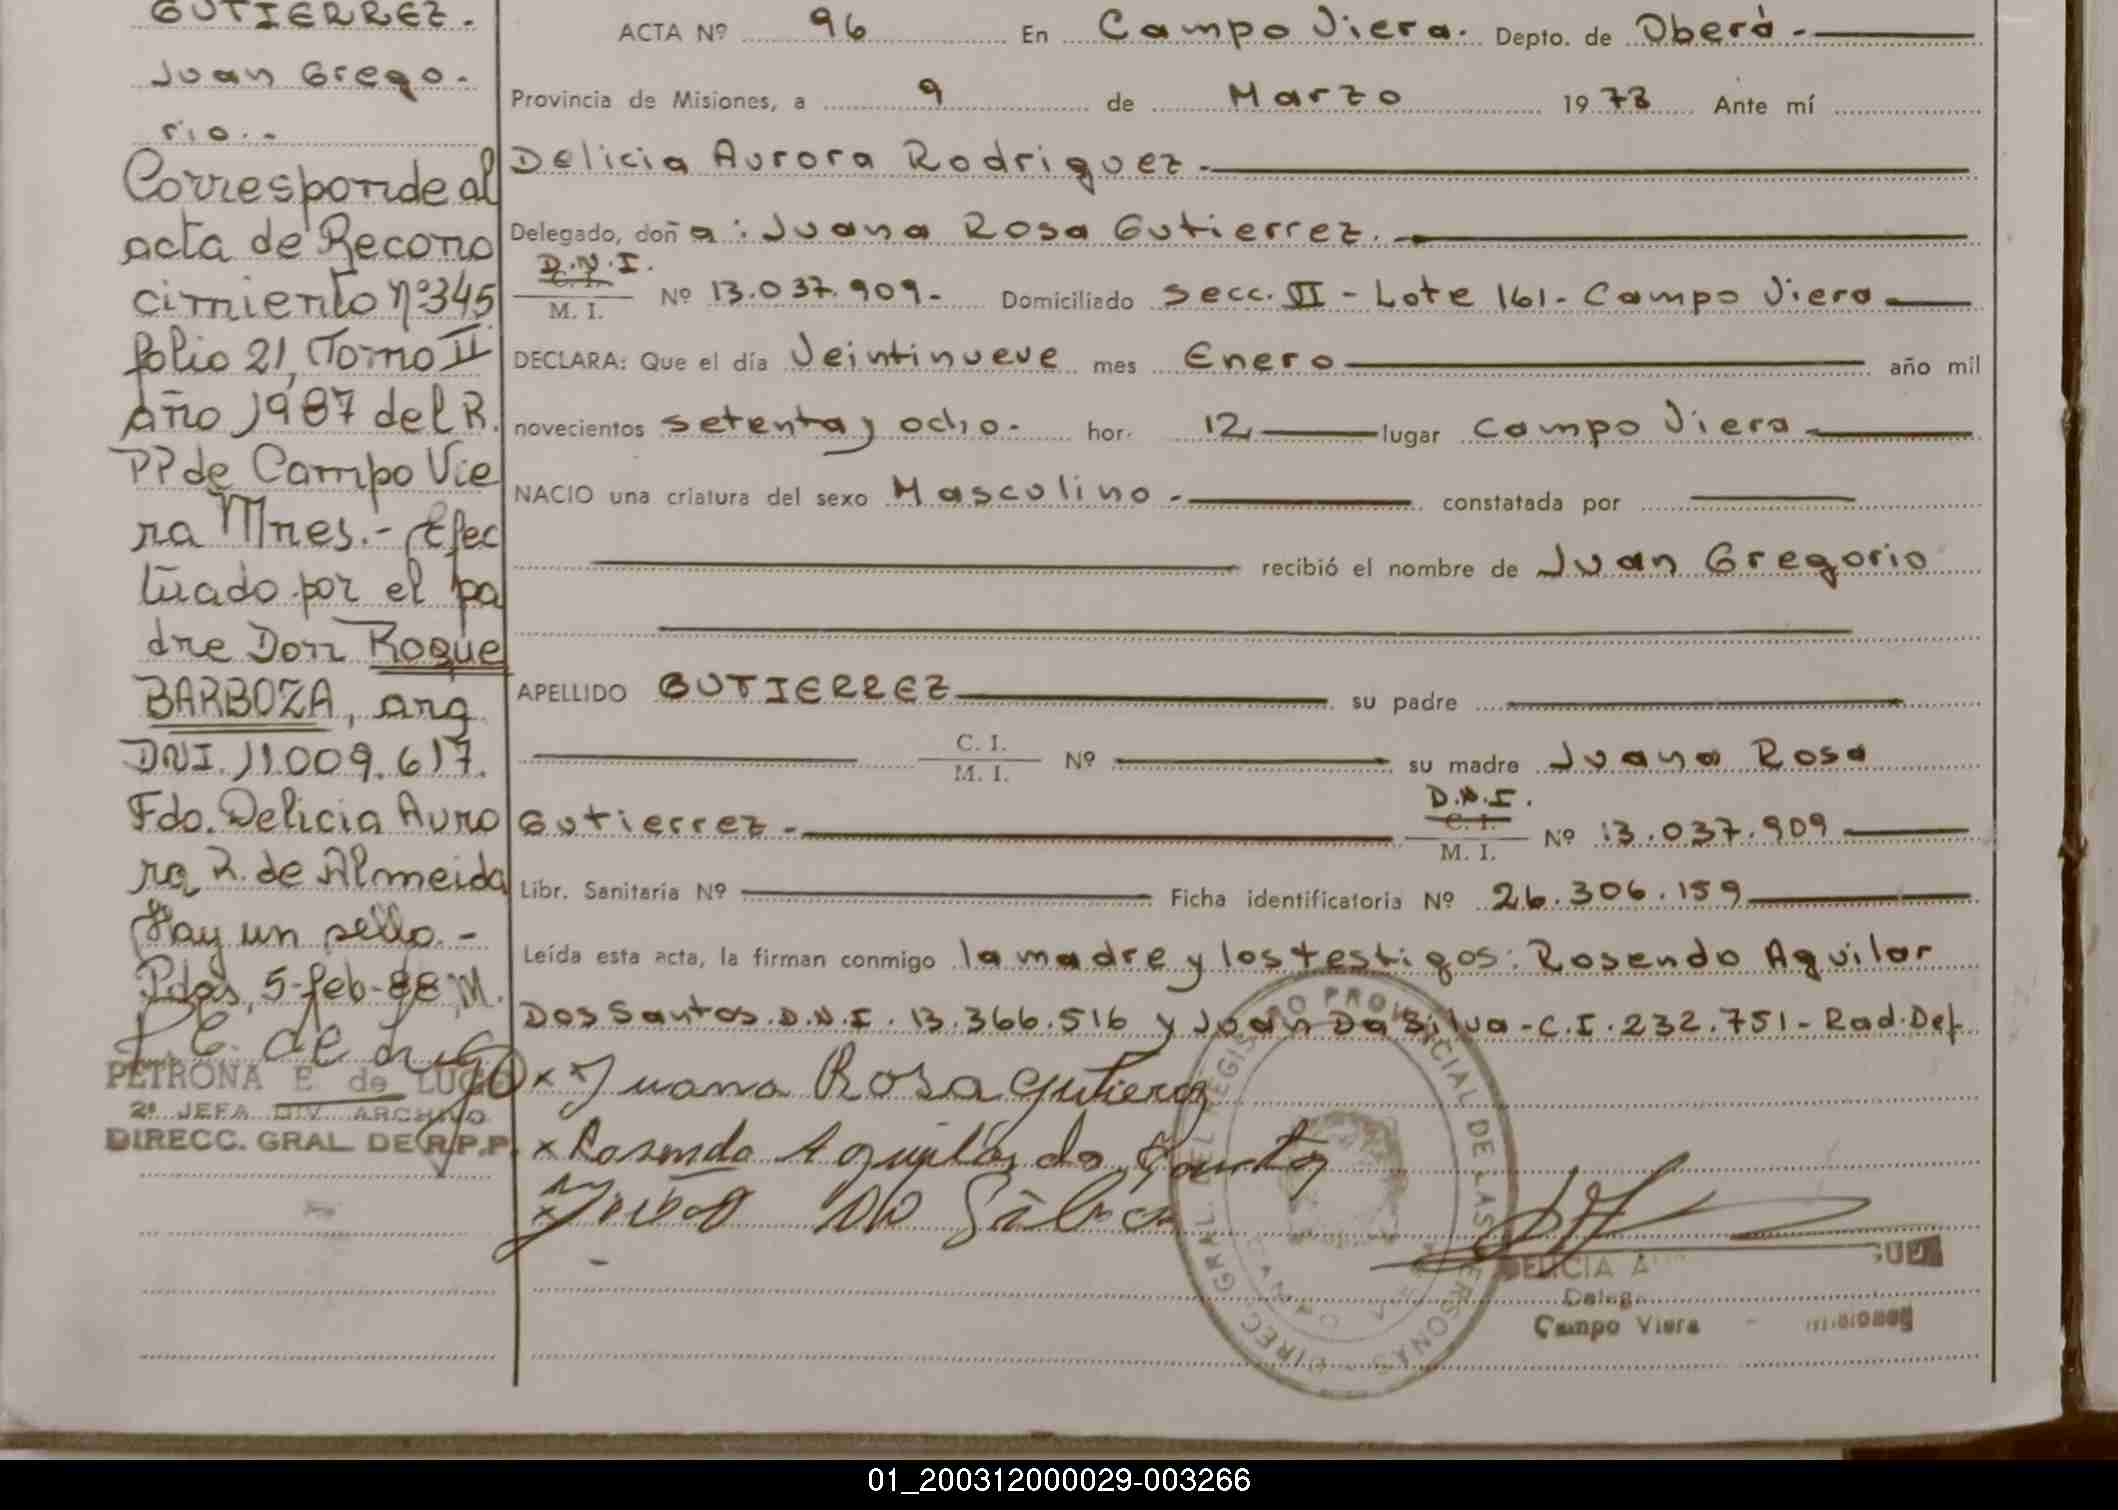 GUTIERREZ.
Juan Grego-
rio.-
Corresponde al
acta de Recono
cimiento nº 345
folio 21, Tomo II
año 1987 del R.
PP de Campo Vie
ra Mnes.- Efec
tuado por el pa
dre Don Roque
BARBOZA, arg
DNI. 11.009.617.
Fdo. Delicia Auro
ra R. de Almeida
Hay un sello.-
Pdas, 5-feb-88, M.
P. E. de Lugo
PETRONA E de LUGO
2ª JEFA DIV. ARCHIVO
DIRECC. GRAL DE R.P.P.
ACTA Nº 96 En Campo Viera. Depto. de Oberá.-
Provincia de Misiones, a 9 de Marzo 1978 Ante mí
Delicia Aurora Rodriguez.-
Delegado, doña: Juana Rosa Gutierrez.
D.N.I. C. I. M. I. Nº 13.037.909.- Domiciliado Secc. VI - Lote 161- Campo Viera
DECLARA: Que el día Veintinueve mes Enero año mil
novecientos setenta y ocho.- hor. 12, lugar Campo Viera
NACIO una criatura del sexo Masculino.- constatada por
recibió el nombre de Juan Gregorio
APELLIDO GUTIERREZ su padre
C. I. M. I. Nº su madre Juana Rosa
Gutierrez.- D.N.I. C. I. M. I. Nº 13.037.909
Libr. Sanitaria Nº Ficha identificatoria Nº 26.306.159
Leída esta acta, la firman conmigo la madre y los testigos: Rosendo Aguilar
Dos Santos. D.N.I. 13.366.516 y Joan Da Silva-C.I. 232.751- Rad. Def.
x x Juana Rosa Gutierrez
x Rosendo Aguilar do Santo
DIREC. GRAL. DEL REGISTRO PROVINCIAL DE LAS PERSONAS
DELICIA
Campo Viera
01_200312000029-003266